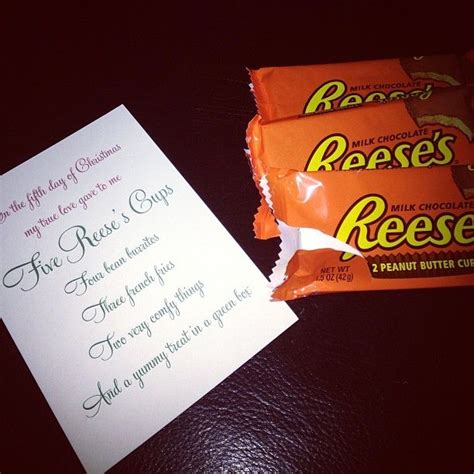 On the fifth day of Christmas
my true love gave to me
Five Reese's Cups
Four bean burritos
Three french fries
Two very comfy things
And a yummy treat in a green box
MILK CHOCOLATE
Reese's
MILK CHOCOLATE
Reese's
MILK CHOCOLATE
Reese's
NET WT
.5 OZ (42g)
2 PEANUT BUTTER CUP